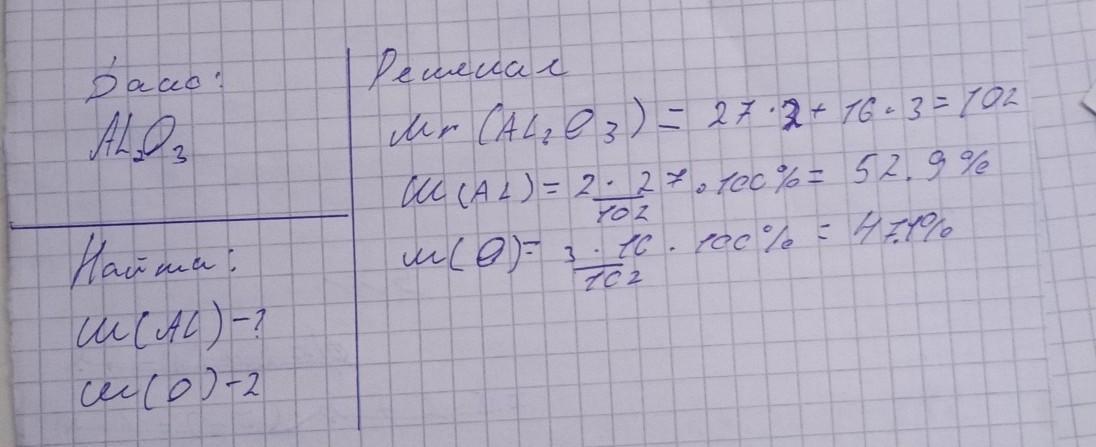 Дано:
AL₂O₃
Найти:
ω(AL)-?
ω(O)-?
Решение
Mr(AL₂O₃) = 27·2+16·3=102
ω(AL)= 2·27/102 · 100%= 52.9%
ω(O)= 3·16/102 · 100% = 47.1%